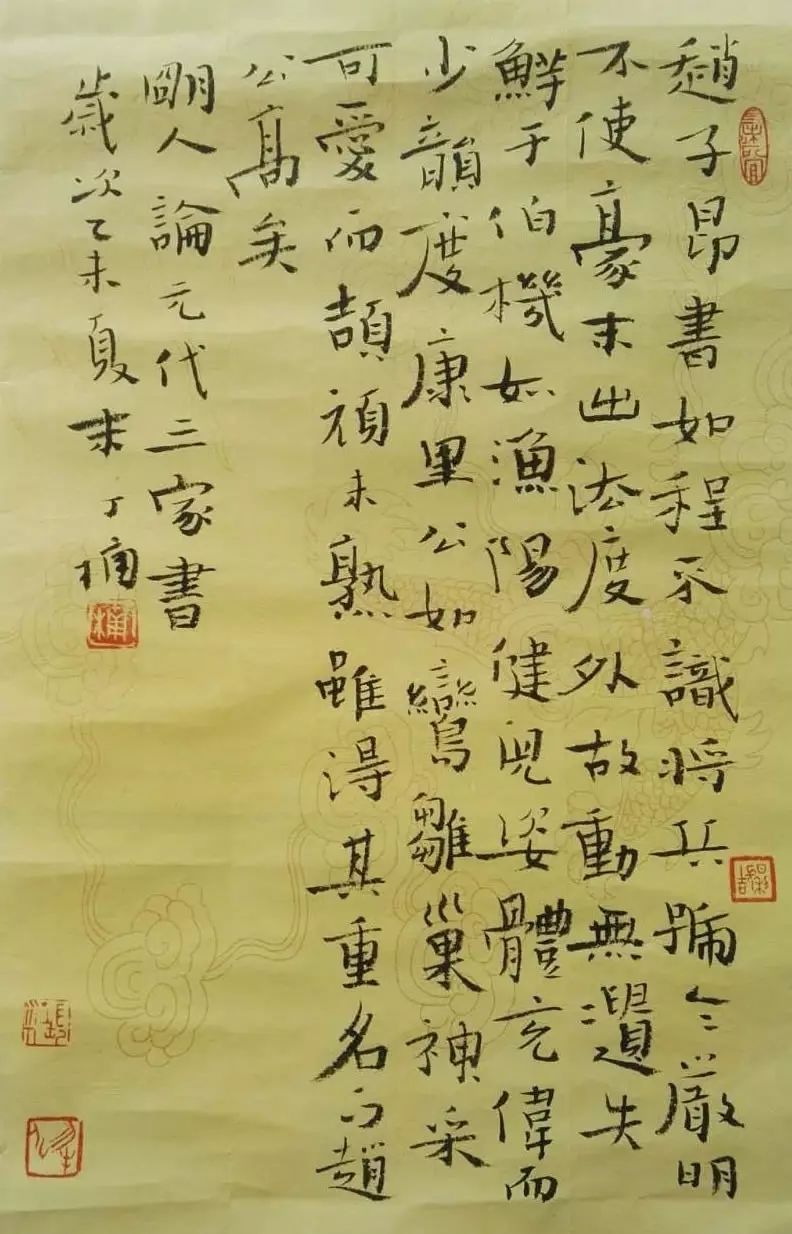 趙子昂書如程不識將兵號令嚴明
不使豪末出法度外故動無遺失
鮮于伯機如漁陽健兒姿體充偉而
少韻度康里公如鸞雛巢神采
可愛而頡頏未熟雖得其重名趙
公高矣
明人論元代三家書
歲次乙未夏末丁